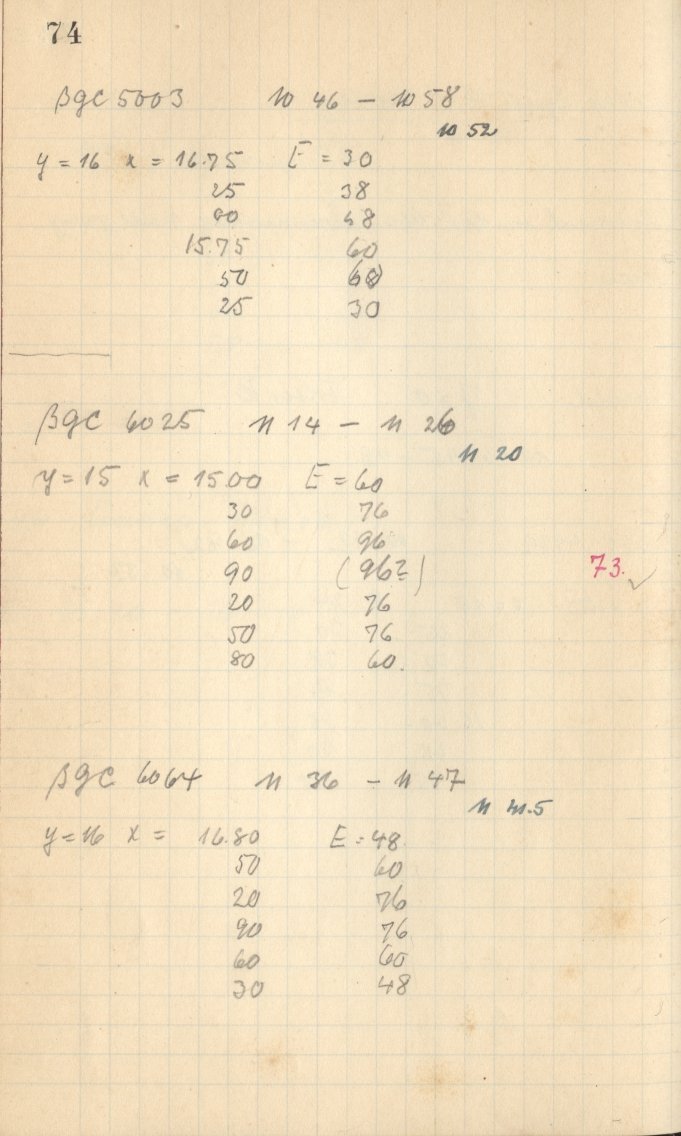 74
βgc 5003 10 46 – 10 58
10 52
y = 16 x = 16.75 E = 30
25 38
00 48
15.75 60
50 60
25 30
βgc 6025 11 14 – 11 26
11 20
y = 15 x = 15.00 E = 60
30 76
60 96
90 (96?) 73. ✓
20 76
50 76
80 60.
βgc 6064 11 36 – 11 47
11 41.5
y = 16 x = 16.80 E = 48.
50 60
20 76
90 76
60 60
30 48